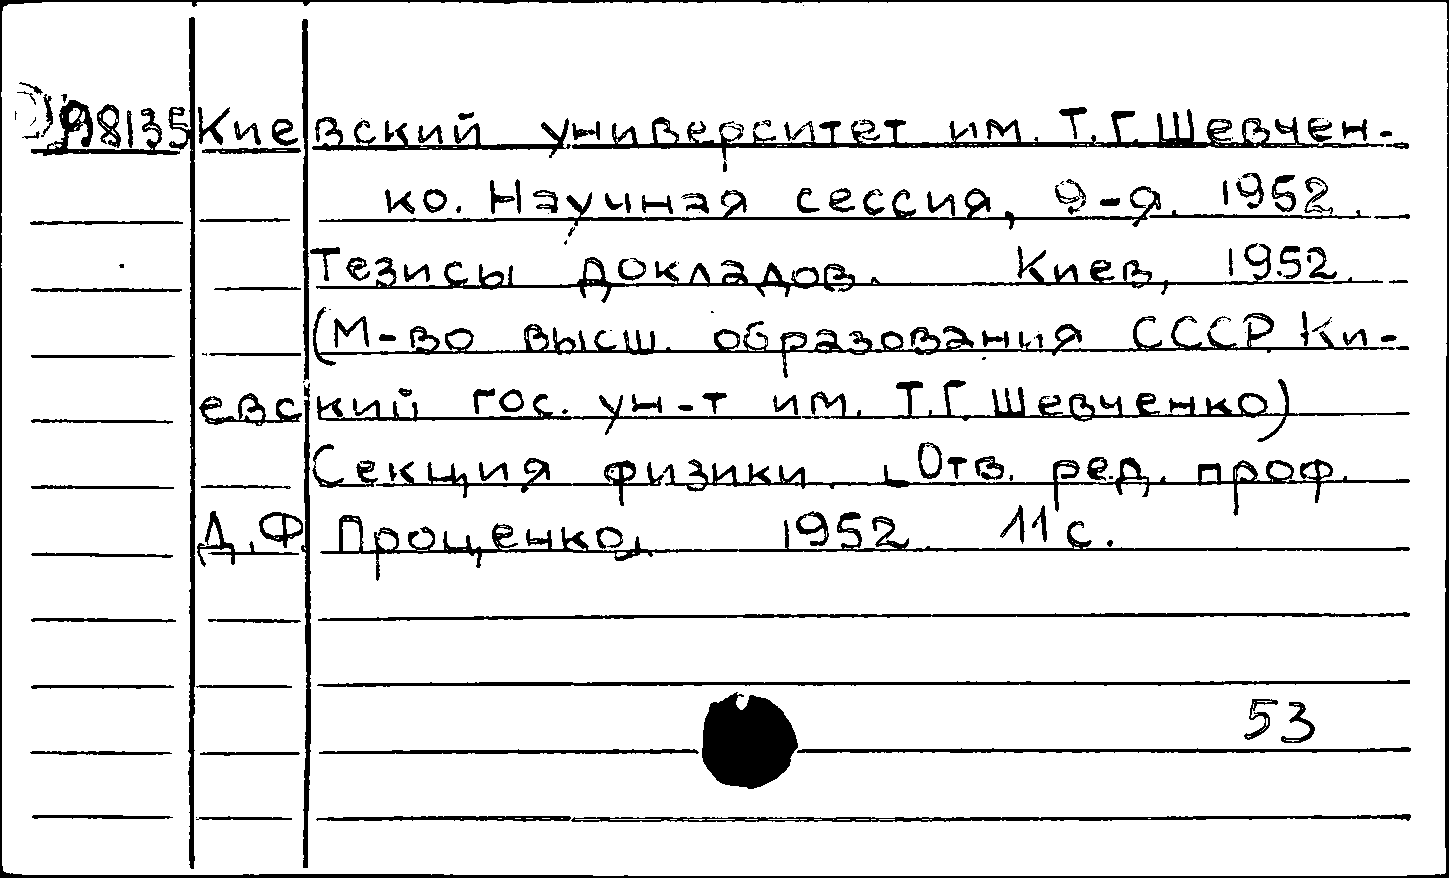 98135 Киевский университет им. Т.Г. Шевчен-
ко. Научная сессия, 9-я. 1952.
Тезисы докладов. Киев, 1952.
(М-во высш. образования СССР Ки-
евский гос. ун-т им. Т.Г. Шевченко)
Секция физики. [Отв. ред. проф.
Д.Ф. Проценко]. 1952. 11 с.
53